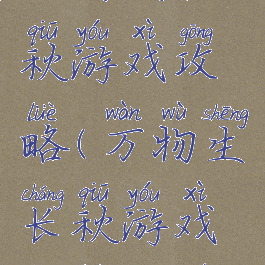 qiū yóu xì gōng
秋游戏攻
lüè wàn wù shēng
略(万物生
cháng qiū yóu xì
长秋游戏